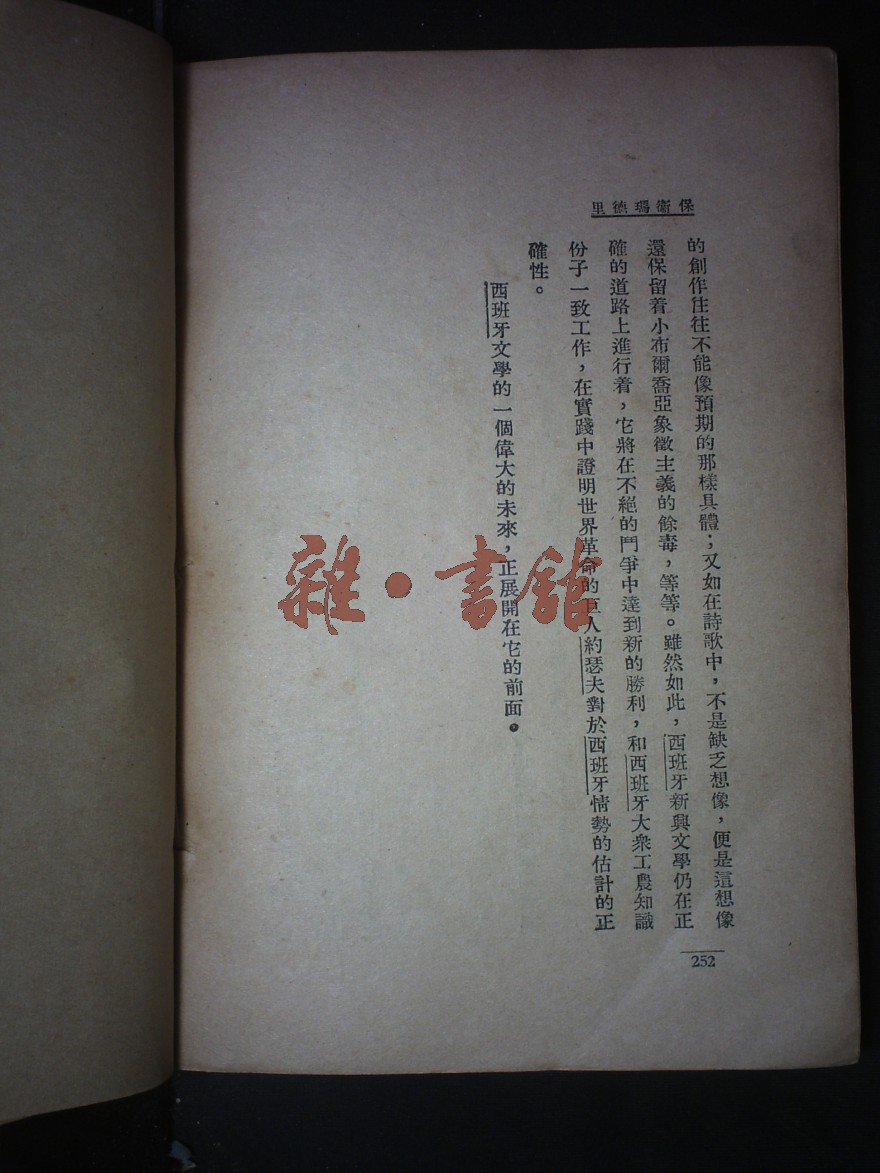 保衛瑪德里
的創作往往不能像預期的那樣具體；又如在詩歌中，不是缺乏想像，便是這想像
還保留着小布爾喬亞象徵主義的餘毒，等等。雖然如此，西班牙新興文學仍在正
確的道路上進行着，它將在不絕的鬥爭中達到新的勝利，和西班牙大衆工農知識
份子一致工作，在實踐中證明世界革命的巨人約瑟夫對於西班牙情勢的估計的正
確性。
西班牙文學的一個偉大的未來，正展開在它的前面。
252
雜·書館